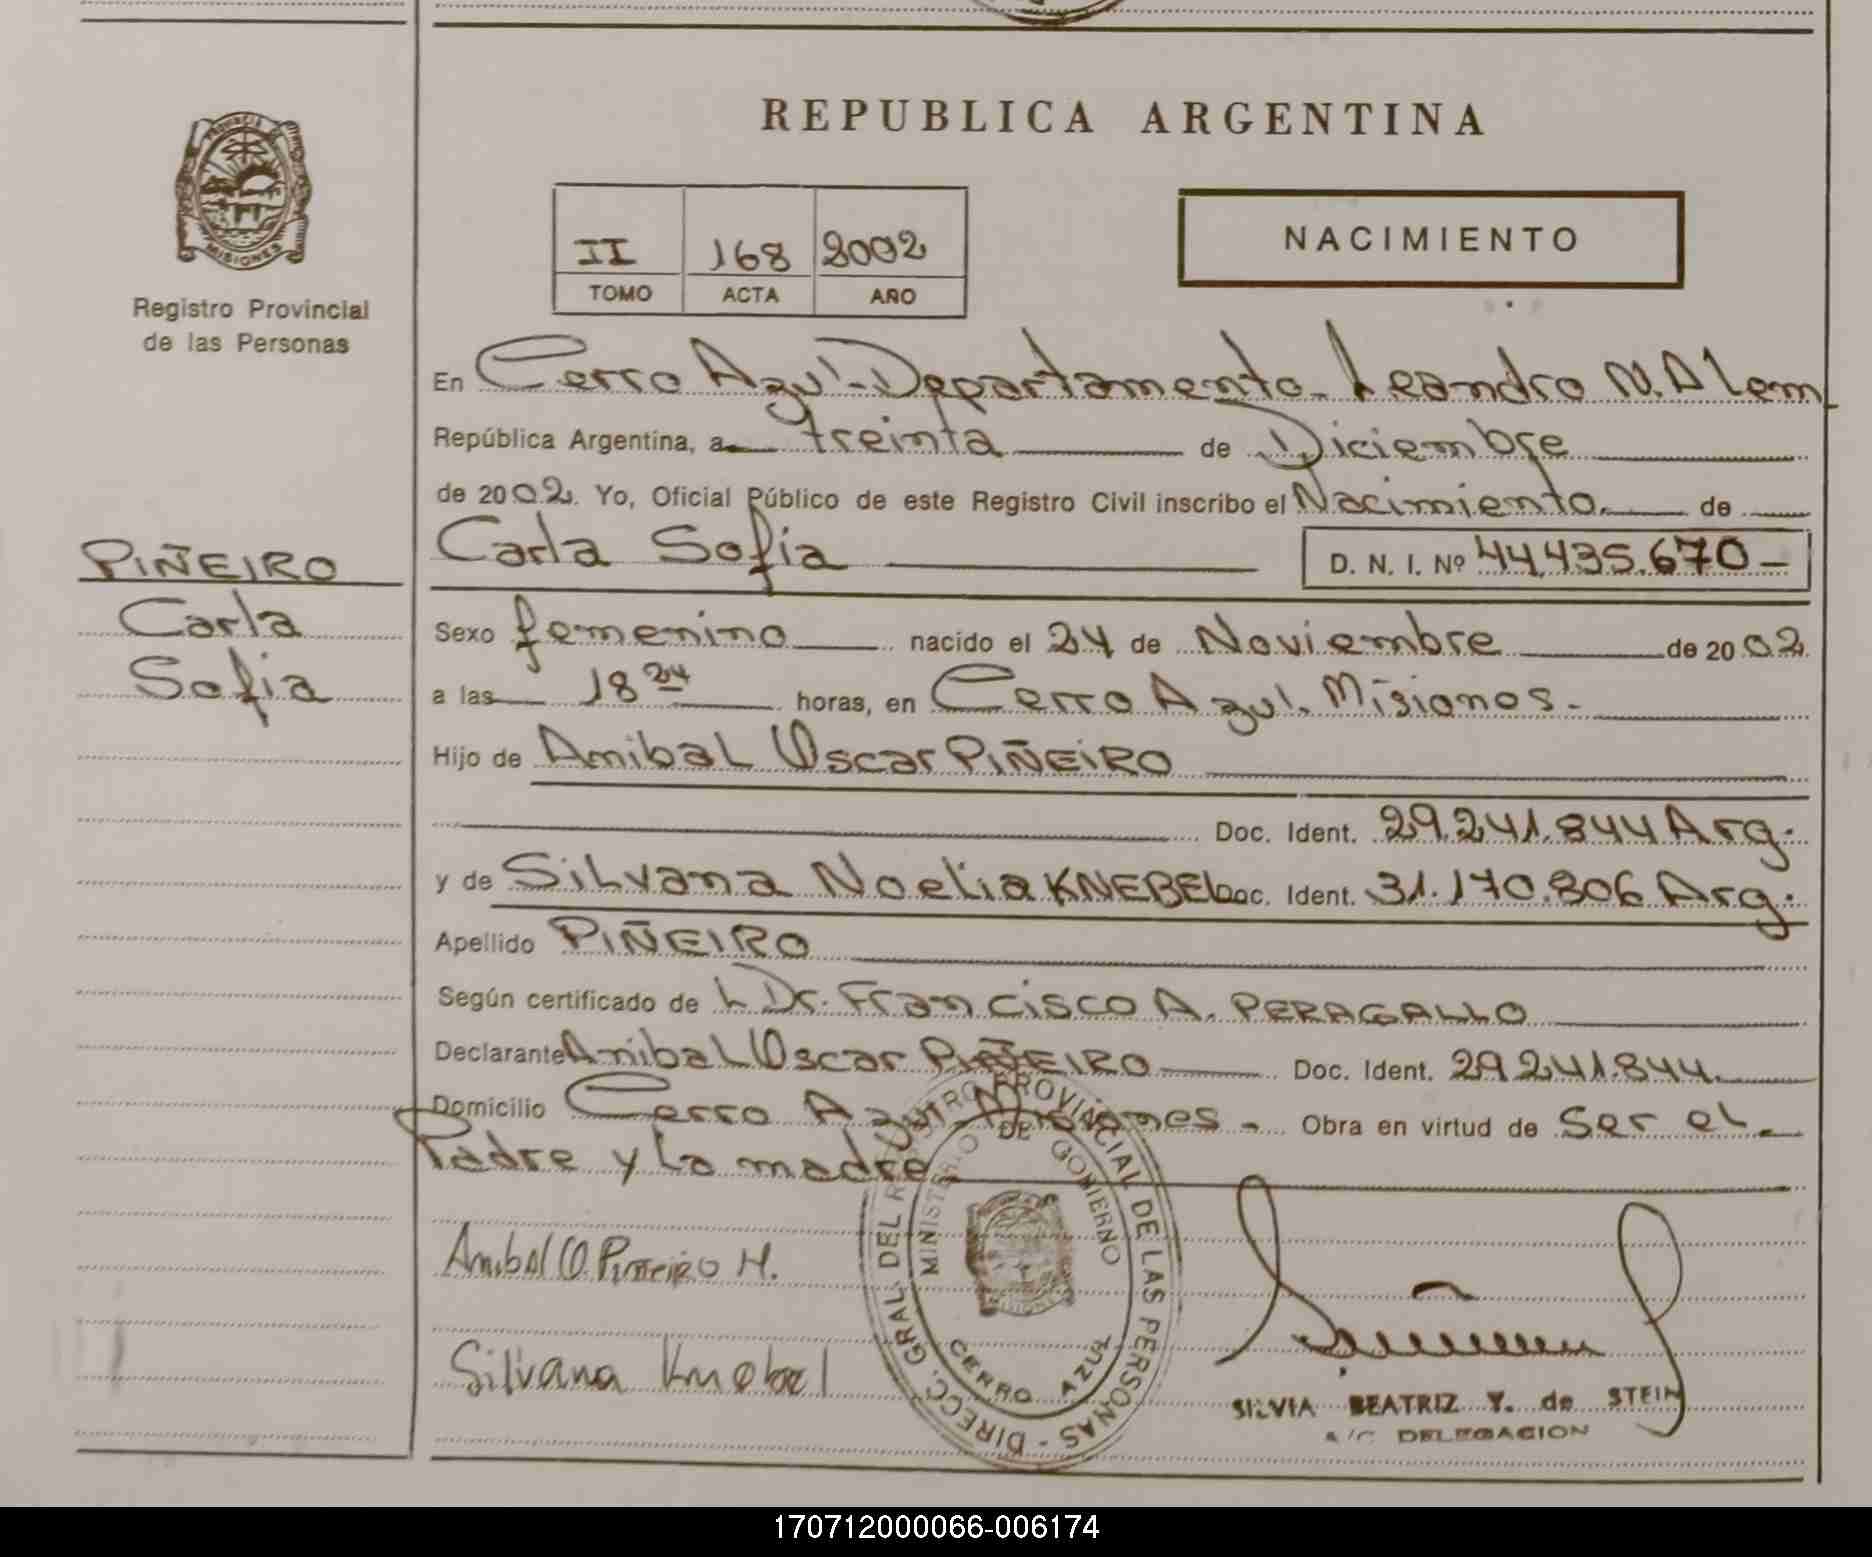 REPUBLICA ARGENTINA
PROVINCIA DE MISIONES
Registro Provincial
de las Personas
II 168 2002
TOMO ACTA AÑO
NACIMIENTO
En Cerro Azul - Departamento - Leandro N. Alem
República Argentina, a treinta de Diciembre
de 2002. Yo, Oficial Público de este Registro Civil inscribo el Nacimiento. de
PIÑEIRO
Carla
Sofia
Carla Sofia D. N. I. Nº 44.435.670-
Sexo femenino nacido el 24 de Noviembre de 2002
a las 18 24 horas, en Cerro Azul. Misiones.-
Hijo de Anibal Oscar PIÑEIRO
Doc. Ident. 29.241.844 Arg.
y de Silvana Noelia KNEBEL Doc. Ident. 31.170.806 Arg.
Apellido PIÑEIRO
Según certificado de Dr. Francisco A. PERAGALLO
Declarante Anibal Oscar PIÑEIRO Doc. Ident. 29.241.844.
Domicilio Cerro Azul - Misiones - Obra en virtud de Ser el
Padre y La madre
Anibal O Piñeiro H.
Silvana Knebel
DIRECC. GRAL. DEL REGISTRO PROVINCIAL DE LAS PERSONAS -
MINISTERIO DE GOBIERNO
CERRO AZUL
SILVIA BEATRIZ Y. de STEIN
A/C DELEGACION
170712000066-006174